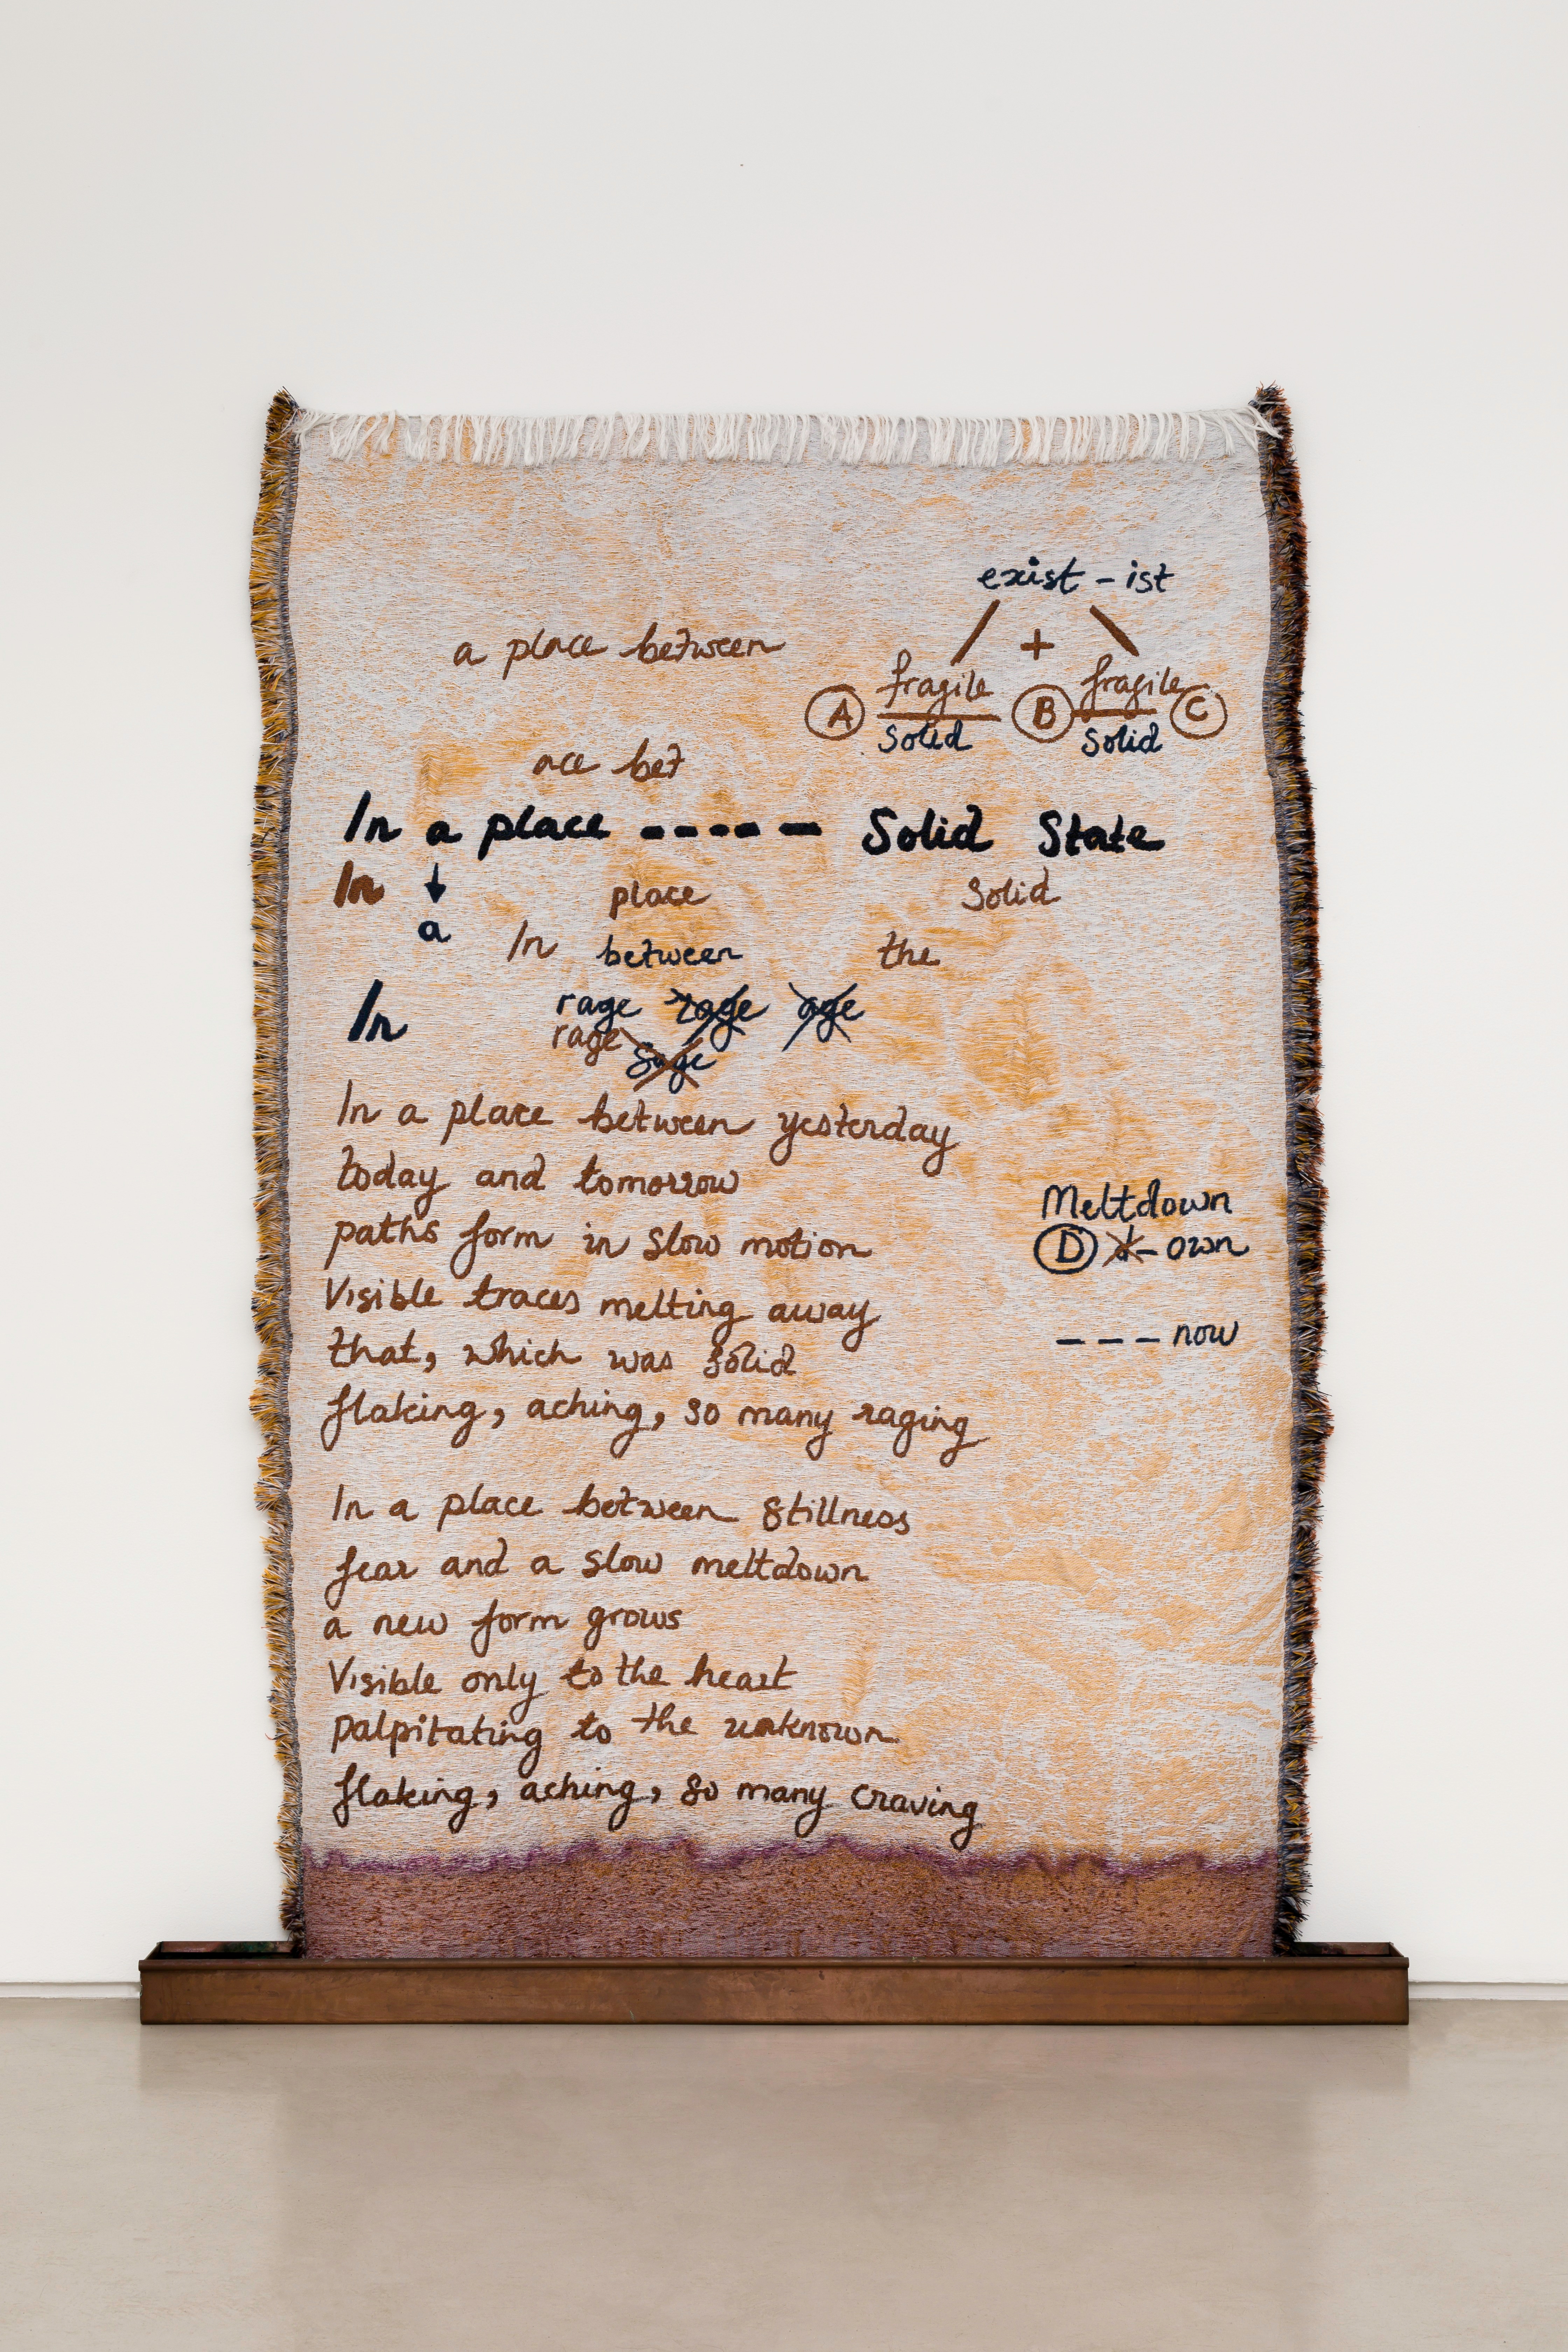 exist - ist
a place between
+
fragile fragile
A B C
solid solid
ace bet
In a place ----- Solid State
In place Solid
a In between the
In rage rage age
rage
Sage
In a place between yesterday
today and tomorrow
paths form in slow motion
Visible traces melting away
that, which was solid
flaking, aching, so many raging
Meltdown
D d- own
--- now
In a place between stillness
fear and a slow meltdown
a new form grows
Visible only to the heart
palpitating to the unknown
flaking, aching, so many craving